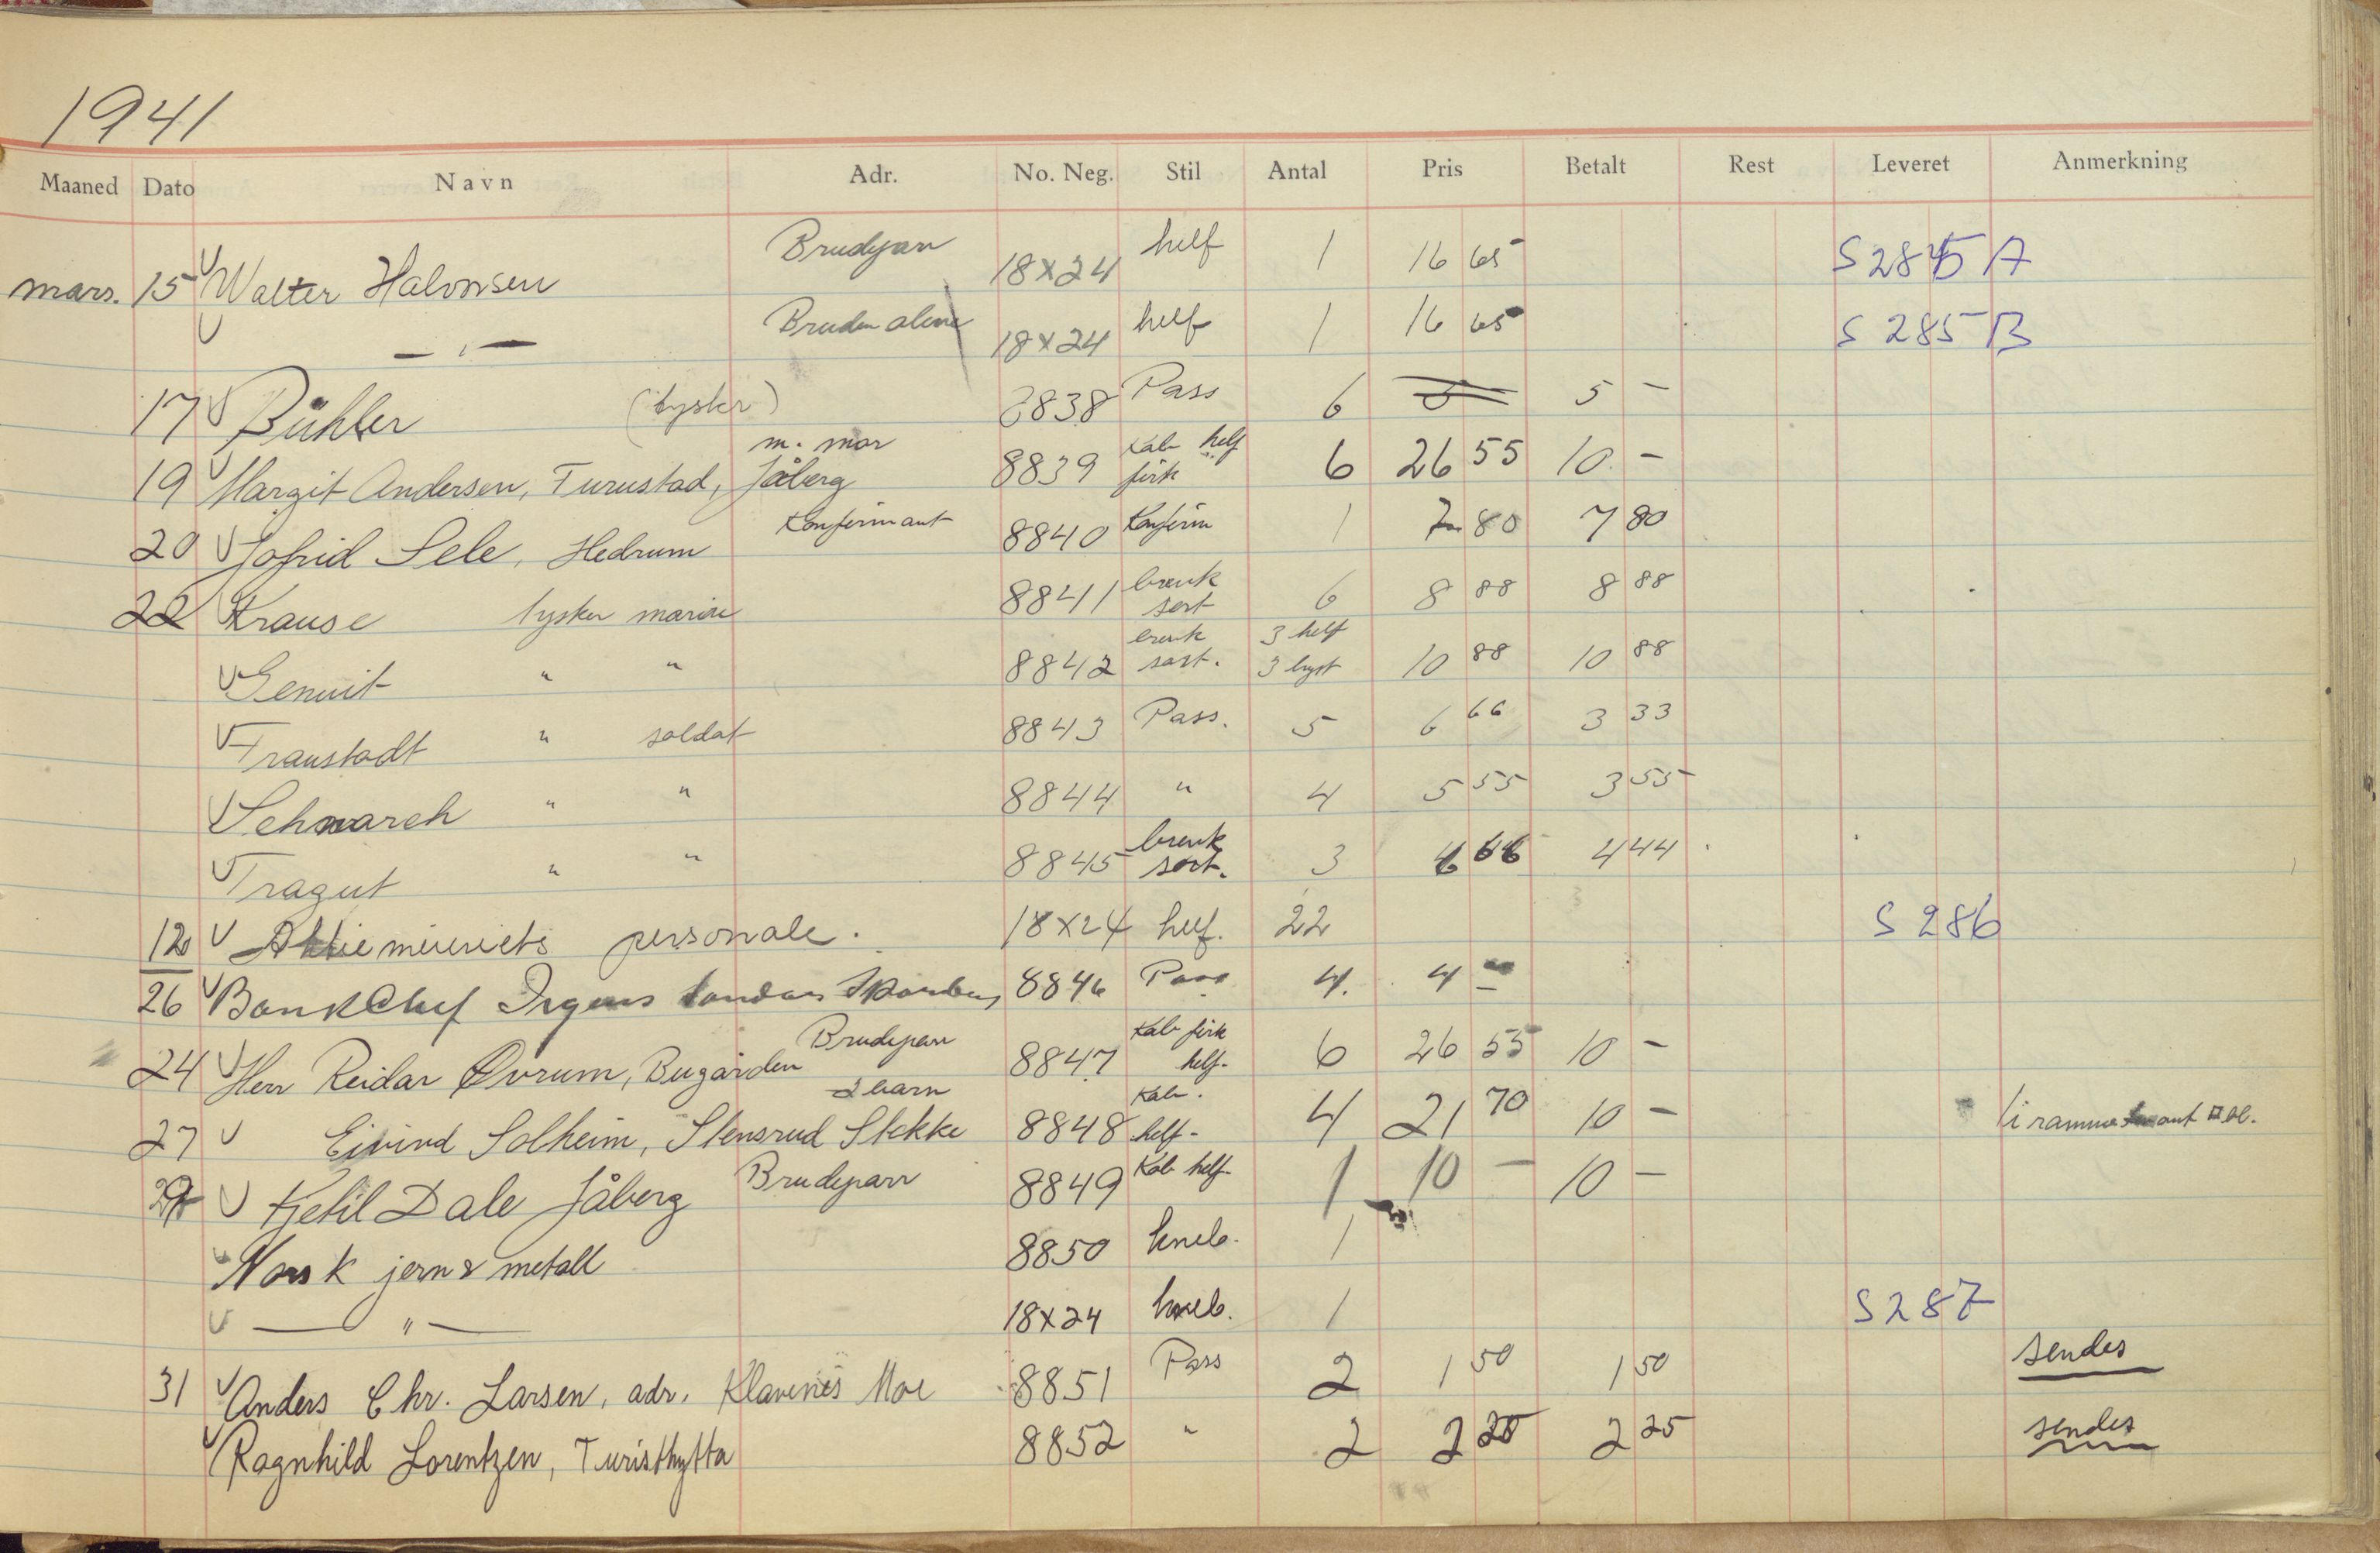 1941
Maaned Dato Navn Adr. No. Neg. Stil Antal Pris Betalt Rest Leveret Anmerkning
mars. 15 Walter Halvorsen Brudepar 18x24 helf 1 16 65 S 285 A
— " — Bruden alene 18x24 helf 1 16 65 S 285 B
17 Bühler (tysker) 8838 Pass 6 5 5 -
19 Margit Andersen, Furustad, Jåberg m. mor 8839 Kab helf firk 6 26 55 10 -
20 Jofrid Sele, Hedrum Konfirmant 8840 Konfirm 1 7 80 7 80
22 Krause tysker marine 8841 sort 6 8 88 8 88
Genuit " " 8842 sort. 3 helf 3 byst 10 88 10 88
Fraustadt " soldat 8843 Pass. 5 6 66 3 33
Schwarch " " 8844 " 4 5 55 3 55
Tragut " " 8845 sort. 3 66 4 44
12 meieriets personale. 18x24 helf. 22 S 286
26 BankChef Irgens 8846 Pass 4. 4 -
24 Herr Reidar Øvrum, Bugården Brudepar 8847 Kab firk helf. 6 26 55 10 -
27 Eivind Solheim, Stensrud Stokke 2 barn 8848 Kab. helf- 4 21 70 10 - 1 i ramme
29 Kjetil Dale Jåberg Brudepar 8849 Kab helf 1 10 - 10 -
Norsk jern & metall 8850 1
— " — 18x24 1 S 287
31 Anders Chr. Larsen, adr. Klavenes Moe 8851 Pass 2 1 50 1 50 sendes
Ragnhild Lorentzen, Turisthytta 8852 " 2 2 25 2 25 sendes